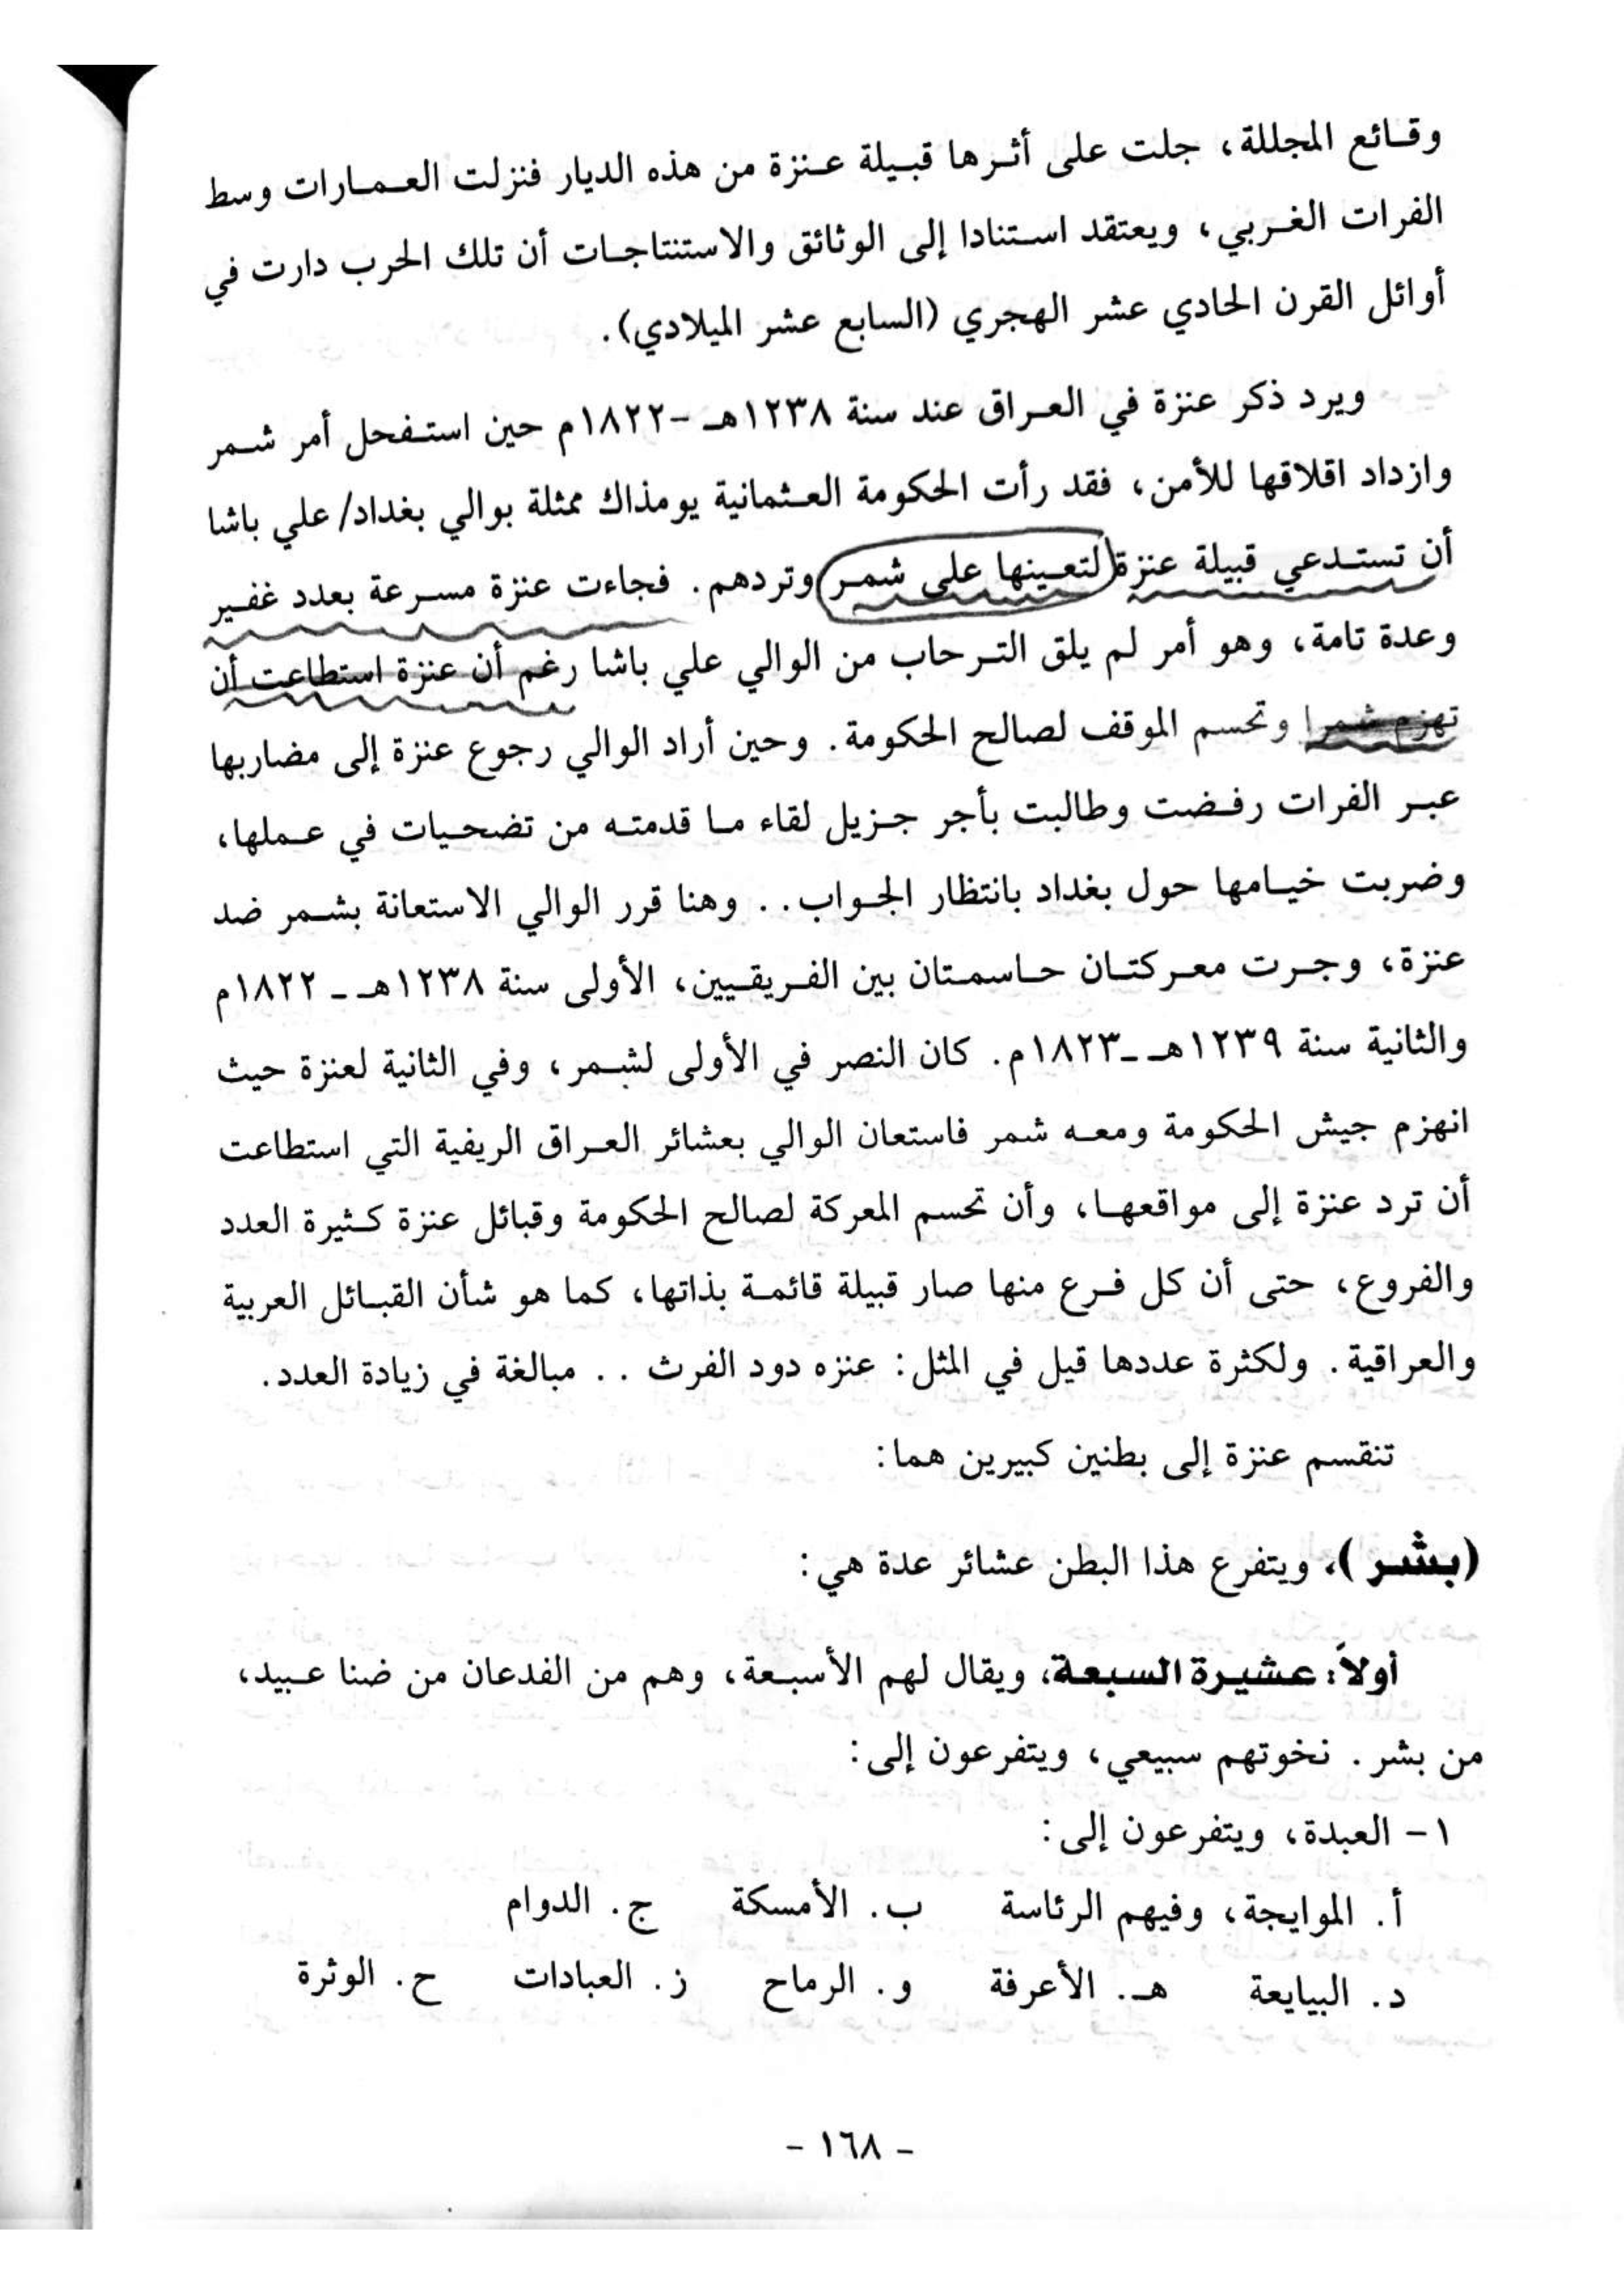 وقائع المجللة، جلت على أثرها قبيلة عنزة من هذه الديار فنزلت العمارات وسط
الفرات الغربي، ويعتقد استنادا إلى الوثائق والاستنتاجات أن تلك الحرب دارت في
أوائل القرن الحادي عشر الهجري (السابع عشر الميلادي).
ويرد ذكر عنزة في العراق عند سنة ١٢٣٨هـ -١٨٢٢م حين استفحل أمر شمر
وازداد اقلاقها للأمن، فقد رأت الحكومة العثمانية يومذاك ممثلة بوالي بغداد/ علي باشا
أن تستدعي قبيلة عنزة لتعينها على شمر وتردهم. فجاءت عنزة مسرعة بعدد غفير
وعدة تامة، وهو أمر لم يلق الترحاب من الوالي علي باشا رغم أن عنزة استطاعت أن
تهزم شمرا وتحسم الموقف لصالح الحكومة. وحين أراد الوالي رجوع عنزة إلى مضاربها
عبر الفرات رفضت وطالبت بأجر جزيل لقاء ما قدمته من تضحيات في عملها،
وضربت خيامها حول بغداد بانتظار الجواب.. وهنا قرر الوالي الاستعانة بشمر ضد
عنزة، وجرت معركتان حاسمتان بين الفريقيين، الأولى سنة ١٢٣٨هـ ـ ١٨٢٢م
والثانية سنة ١٢٣٩هـ ـ١٨٢٣م. كان النصر في الأولى لشمر، وفي الثانية لعنزة حيث
انهزم جيش الحكومة ومعه شمر فاستعان الوالي بعشائر العراق الريفية التي استطاعت
أن ترد عنزة إلى مواقعها، وأن تحسم المعركة لصالح الحكومة وقبائل عنزة كثيرة العدد
والفروع، حتى أن كل فرع منها صار قبيلة قائمة بذاتها، كما هو شأن القبائل العربية
والعراقية. ولكثرة عددها قيل في المثل: عنزه دود الفرث .. مبالغة في زيادة العدد.
تنقسم عنزة إلى بطنين كبيرين هما:
(بشر)، ويتفرع هذا البطن عشائر عدة هي:
أولاً: عشيرة السبعة، ويقال لهم الأسبعة، وهم من الفدعان من ضنا عبيد،
من بشر. نخوتهم سبيعي، ويتفرعون إلى:
١- العبدة، ويتفرعون إلى:
أ. الموايجة، وفيهم الرئاسة ب. الأمسكة ج. الدوام
د. البيايعة هـ. الأعرفة و. الرماح ز. العبادات ح. الوثرة
- ١٦٨ -